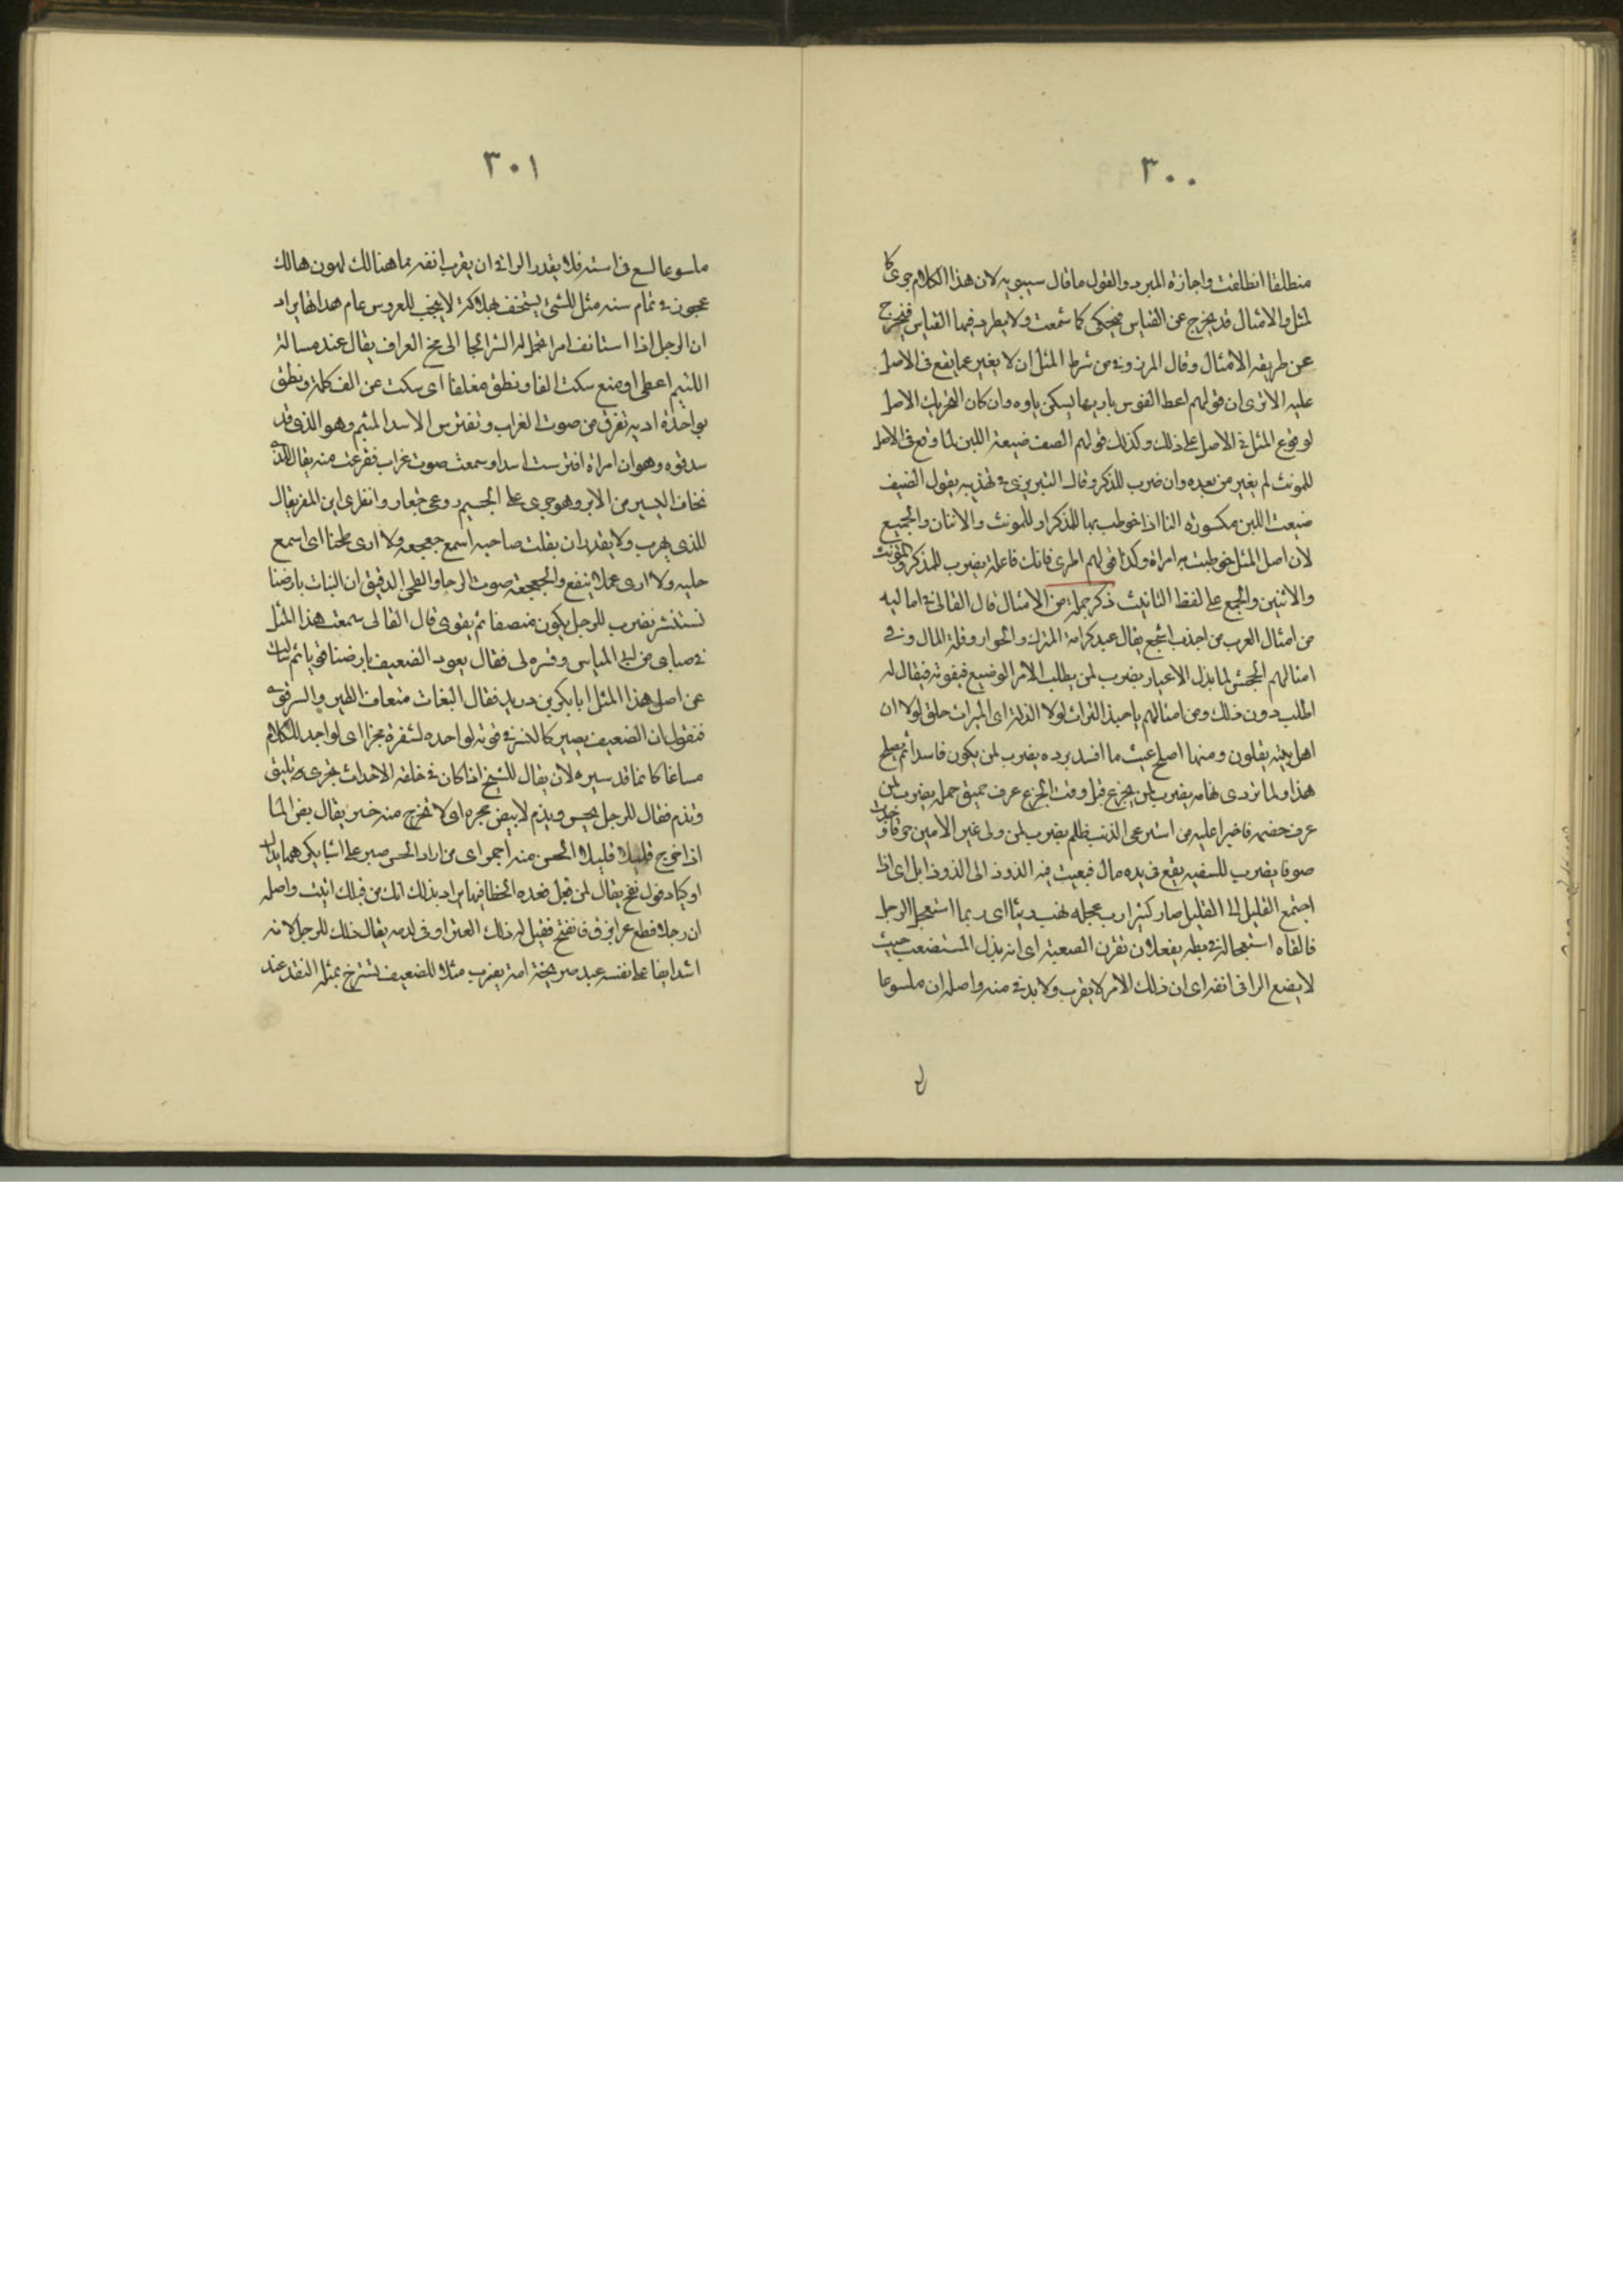 ٣٠٠
منطلقا انطلقت واجازة المبرد والقول ما قال سيبويه لان هذا الكلام جرى كا
لمثل والامثال قد يخرج عن القياس فيحكى كما سمعت ولا يطرد فيها القياس فيخرج
عن طريقه الامثال وقال المرزوقى من شرط المثل ان لا يغير عما يقع فى الاصل
عليه الا ترى ان قولهم اعط القوس باريها يسكن ياوه وان كان التحريك الاصل
لوقوع المثل فى الاصل على ذلك وكذلك قولهم الصيف ضيعة اللبن لما وقع فى الاصل
للمونث لم يغير من بعده وان ضرب للمذكر وقال التبريزى فى تهذيبه يقول الضيف
ضيعت اللبن مكسوره التا اذا خوطب بها المذكر او للمونث والاثنان والجميع
لان اصل المثل خوطبت به امراة وكذا قولهم اطرى فانك فاعلة يضرب للمذكر والمؤنث
والاثنين والجمع على لفظ التانيث ذكر جملة من الامثال قال القالى فى اماليه
من امثال العرب من اجذب انتجع يقال عبد كرامة المنزل والجوار وقلة المال وفى
امثالهم الجحش لما بذل الاعيار يضرب لمن يطلب الامر الوضيع فيفوته فيقال له
اطلب دون ذلك ومن امثالهم يا حبذا التراث لولا الذلة اى الميراث حلو لولا ان
اهل بيته يقلون ومنها اصلح غيث ما افسد برده يضرب لمن يكون فاسدا ثم يصلح
هذا ولما تردى تهامه يضرب لمن يجزع قبل وقت الجزع عرف حميق جمله يضرب لمن
عرف خصمه فاجترا عليه من استرعى الذئب ظلم يضرب لمن ولى غير الامين خرقا وجدت
صوفا يضرب للسفيه يقع فى يده مال فيعيث فيه الذود الى الذود ابل اى اذا
اجتمع القليل الى القليل صار كثيرا رب عجله تهب ريثا اى ربما استعجل الرجل
فالقاه استعجاله فى بطء بفعلان تقرن الصعبة اى انه يذل المستضعب حيث
لا يضع الراقى انفه اى ان ذلك الامر لا يقرب ولا يدنى منه واصله ان ملسوعا
٣٠١
ملسوعا لسع فى استه فلا يقدر الراقى ان يقرب انفه مما هنالك لهون هالك
عجوز فى عام سنه مثل للشئ يستخف بهلاكه لا يعجب للعروس عام هدائها يراد
ان الرجل اذا استانف امرا تجمل له الشر الجا الى مخ العراقيب يقال عند مسالة
اللئيم اعطى او منع سكت الفا ونطق مغلقا اى سكت عن الف كلمة ونطق
بواحدة اديه تفرق من صوت الغراب وتفترس الاسد المشيم وهو الذى قد
سد فوه وهو ان امراة افترست اسدا وسمعت صوت غراب ففزعت منه يقال للذى
يخاف اليسير من الامر وهو جرى على الجسيم روعى جعار وانظرى اين المفر يقال
للذى يهرب ولا يقدر ان يفلت صاحبه اسمع جعجعه ولا ارى طحنا اى اسمع
جلبه ولا ارى عملا ينفع والجعجعة صوت الرحا والطحن الدقيق ان البغاث بارضنا
تستنسر يضرب للرجل يكون منصفا ثم يقوى قال القالى سمعت هذا المثل
فى صباى من ابى المياس وفسره لى فقال يعود الضعيف بارضنا قويا ثم سالت
عن اصل هذا المثل ابا بكر بن دريد فقال البغاث ضعاف الطير والنسر قوى
فنقول ان الضعيف يصير كالنسر فى قوته لو اجد لشفرة محزا اى لو اجد للكلام
مساغا كانما قد سيره الان يقال للشيخ اذا كان فى خلقه الاحداث تجرى بليق
ويذم فقال للرجل يحسن ويذم لا يبض حجره اى لا تخرج منه خير يقال بض الما
اذا خرج قليلا قليلا الحسن منه احمر اى من اراد الحسن صبر على اشيا يكرهها يداك
اوكتا وفوك نفخ يقال لمن فعل فعله الخطا فيها يراد بذلك انك من قبلك اتيت واصله
ان رجلا قطع عرا بزق فانفتح فقيل له ذلك العير اوقى لدمه يقال ذلك للرجل لانه
اشد ابقا على نفسه عبد صريخه امة يضرب مثلا للضعيف يستصرخ بمثله النقد عند